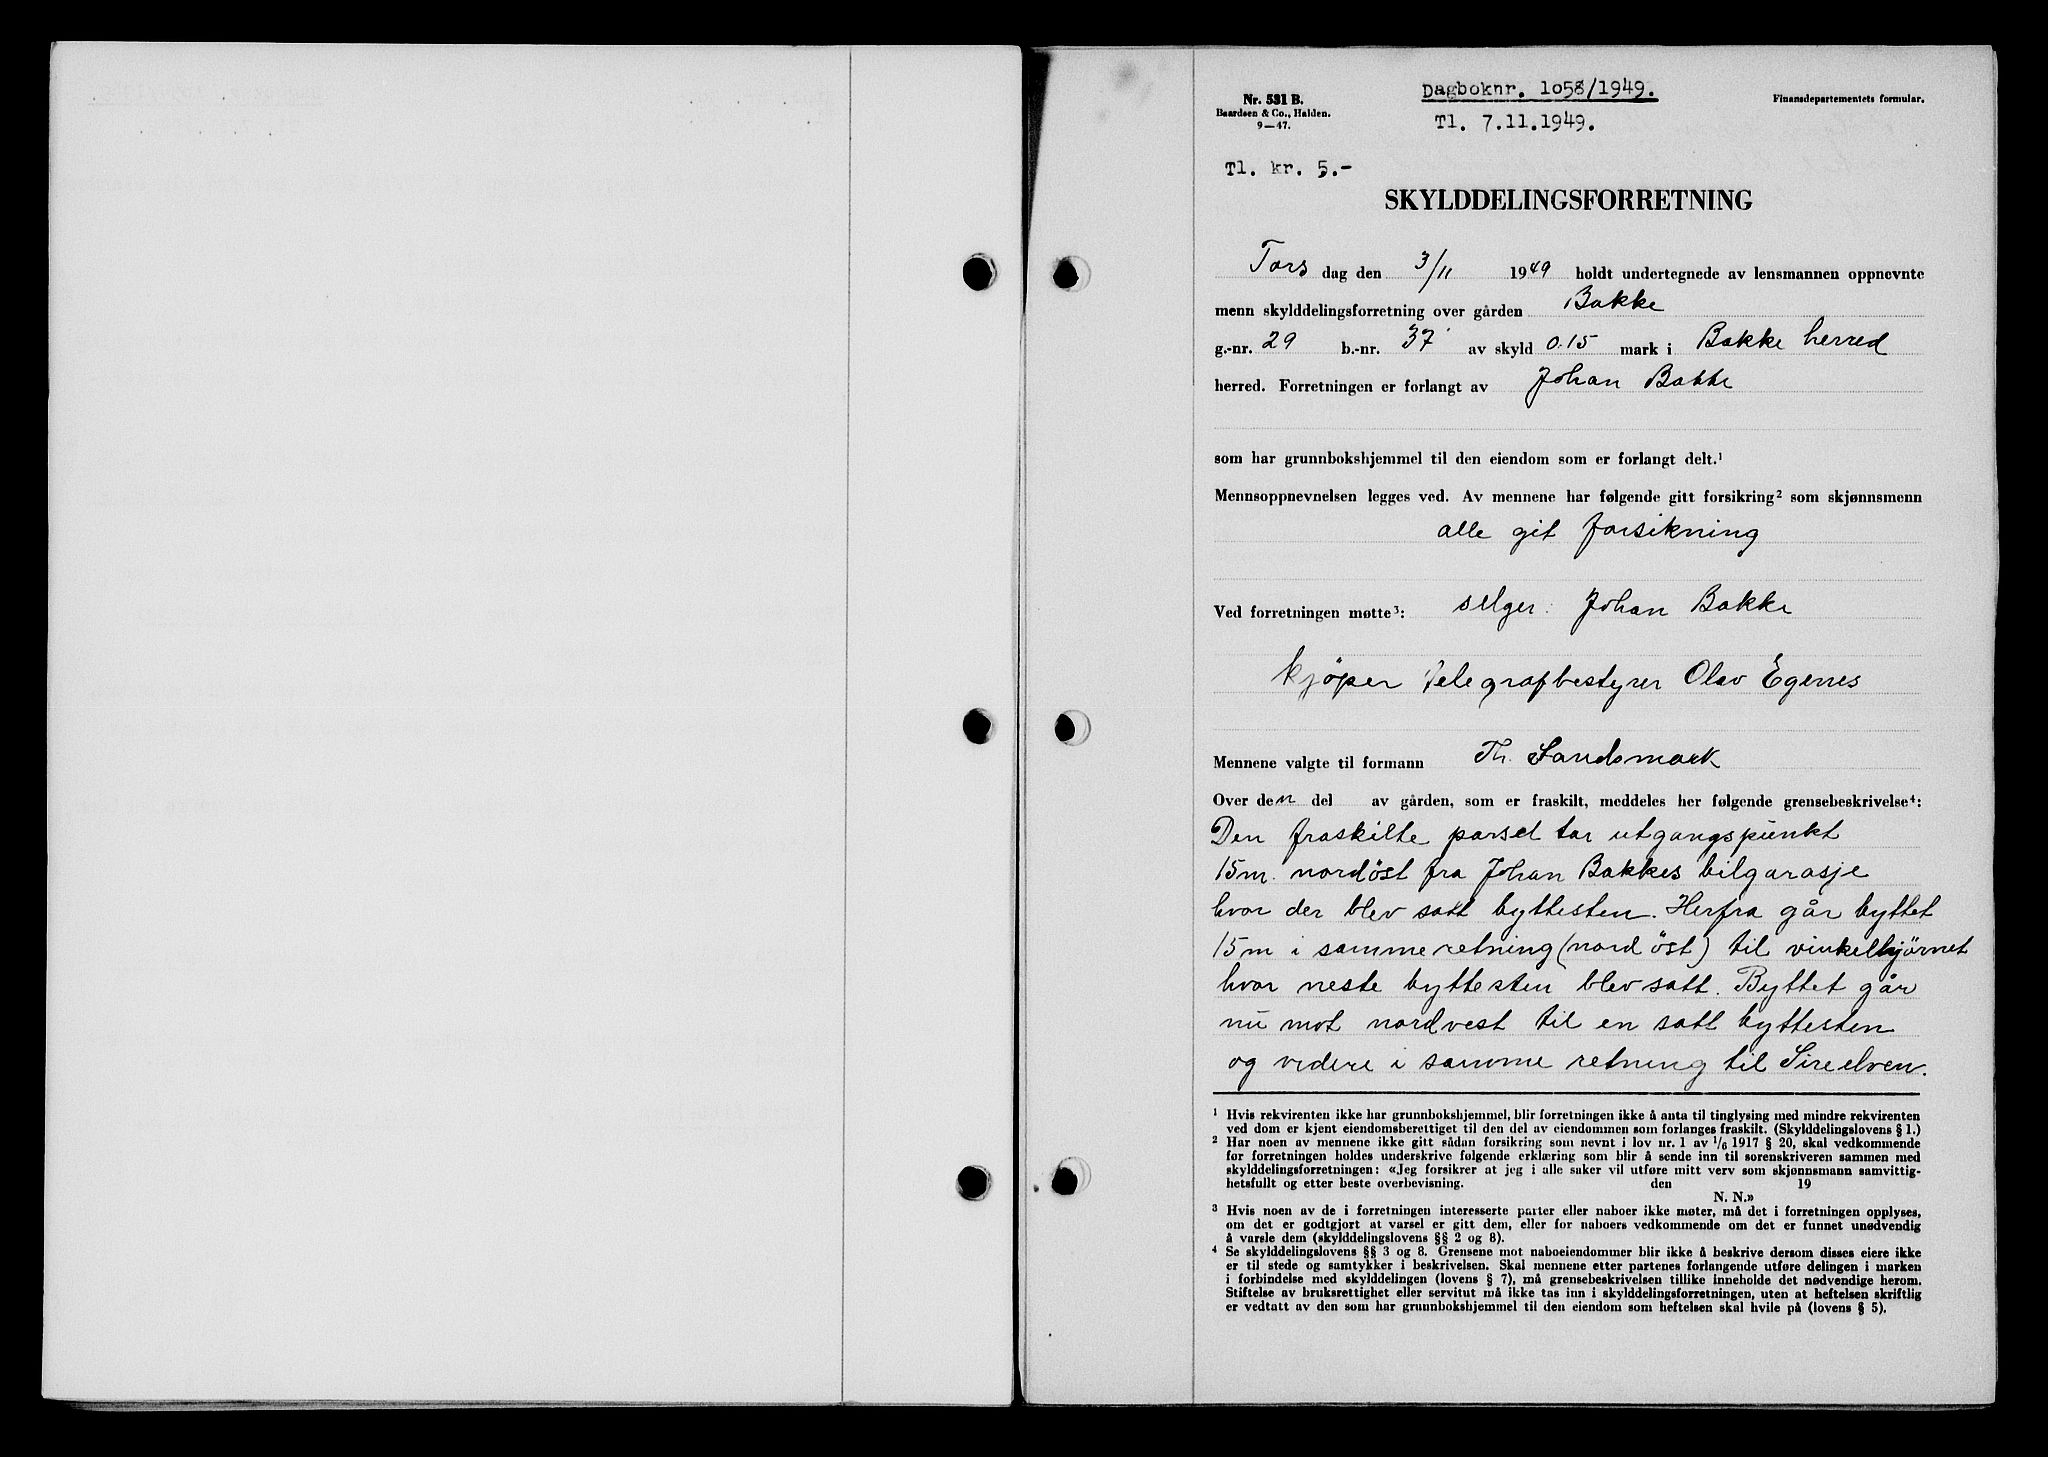 Nr. 531 B.
Baardsen & Co., Halden.
9—47.
Dagboknr. 1058/1949.
Tl. 7.11.1949.
Finansdepartementets formular.
Tl. kr. 5.-
SKYLDDELINGSFORRETNING
Tors dag den 3/11 1949 holdt undertegnede av lensmannen oppnevnte
menn skylddelingsforretning over gården Bakke
g.-nr. 29 b.-nr. 37 av skyld 0.15 mark i Bakke herred
herred. Forretningen er forlangt av Johan Bakke
som har grunnbokshjemmel til den eiendom som er forlangt delt.¹
Mennsoppnevnelsen legges ved. Av mennene har følgende gitt forsikring² som skjønnsmenn
alle git forsikning
Ved forretningen møtte³: selger: Johan Bakke
kjøper Telegrafbestyrer Olav Egenes
Mennene valgte til formann Th. Sandsmark
Over den del av gården, som er fraskilt, meddeles her følgende grensebeskrivelse⁴:
Den fraskilte parsel tar utgangspunkt
15m. nordöst fra Johan Bakkes bilgarasje
hvor der blev satt byttesten. Herfra går byttet
15m i samme retning (nord öst) til vinkelhjørnet
hvor neste byttesten blev satt. Byttet går
nu mot nordvest til en satt byttesten
og videre i samme retning til Sireelven.
¹ Hvis rekvirenten ikke har grunnbokshjemmel, blir forretningen ikke å anta til tinglysing med mindre rekvirenten
ved dom er kjent eiendomsberettiget til den del av eiendommen som forlanges fraskilt. (Skylddelingslovens § 1.)
² Har noen av mennene ikke gitt sådan forsikring som nevnt i lov nr. 1 av 1/6 1917 § 20, skal vedkommende
før forretningen holdes underskrive følgende erklæring som blir å sende inn til sorenskriveren sammen med
skylddelingsforretningen: «Jeg forsikrer at jeg i alle saker vil utføre mitt verv som skjønnsmann samvittig-
hetsfullt og etter beste overbevisning. den 19
N. N.»
³ Hvis noen av de i forretningen interesserte parter eller naboer ikke møter, må det i forretningen opplyses,
om det er godtgjort at varsel er gitt dem, eller for naboers vedkommende om det er funnet unødvendig
å varsle dem (skylddelingslovens §§ 2 og 8).
⁴ Se skylddelingslovens §§ 3 og 8. Grensene mot naboeiendommer blir ikke å beskrive dersom disses eiere ikke
er til stede og samtykker i beskrivelsen. Skal mennene etter partenes forlangende utføre delingen i marken
i forbindelse med skylddelingen (lovens § 7), må grensebeskrivelsen tillike inneholde det nødvendige herom.
Stiftelse av bruksrettighet eller servitut må ikke tas inn i skylddelingsforretningen, uten at heftelsen skriftlig
er vedtatt av den som har grunnbokshjemmel til den eiendom som heftelsen skal hvile på (lovens § 5).